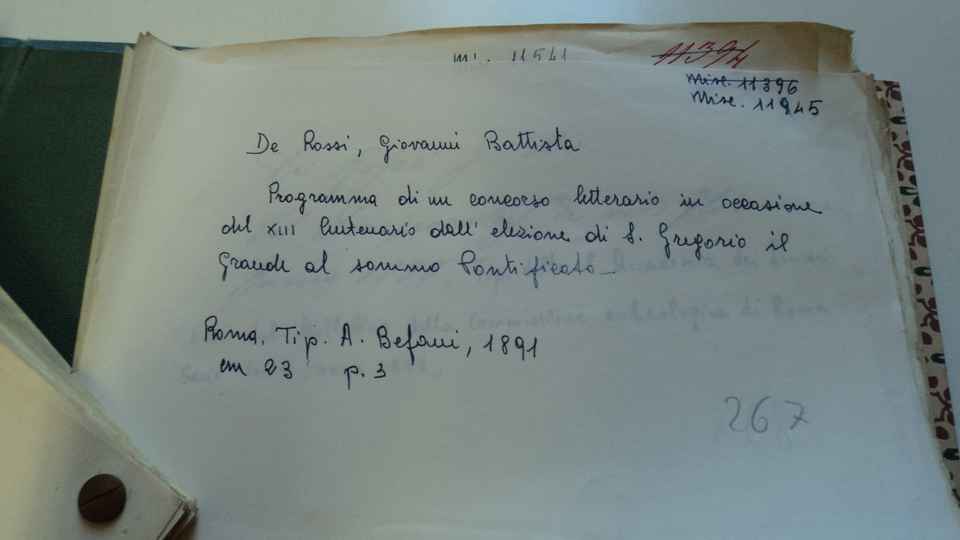 mi. 11541
11394
Misc. 11396
Misc. 11245
De Rossi, Giovanni Battista
Programma di un concorso letterario in occasione
del XIII Centenario dall' elezione di S. Gregorio il
Grande al sommo Pontificato
Roma, Tip. A. Befani, 1891
cm 23 p. 3
267